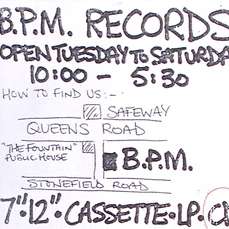 B.P.M. RECORDS
OPEN TUESDAY TO SATURDA
10:00 - 5:30
HOW TO FIND US:-
SAFEWAY
QUEENS ROAD
"THE FOUNTAIN"
PUBLIC HOUSE
B.P.M.
STONEFIELD ROAD
7"•12"•CASSETTE•LP•C